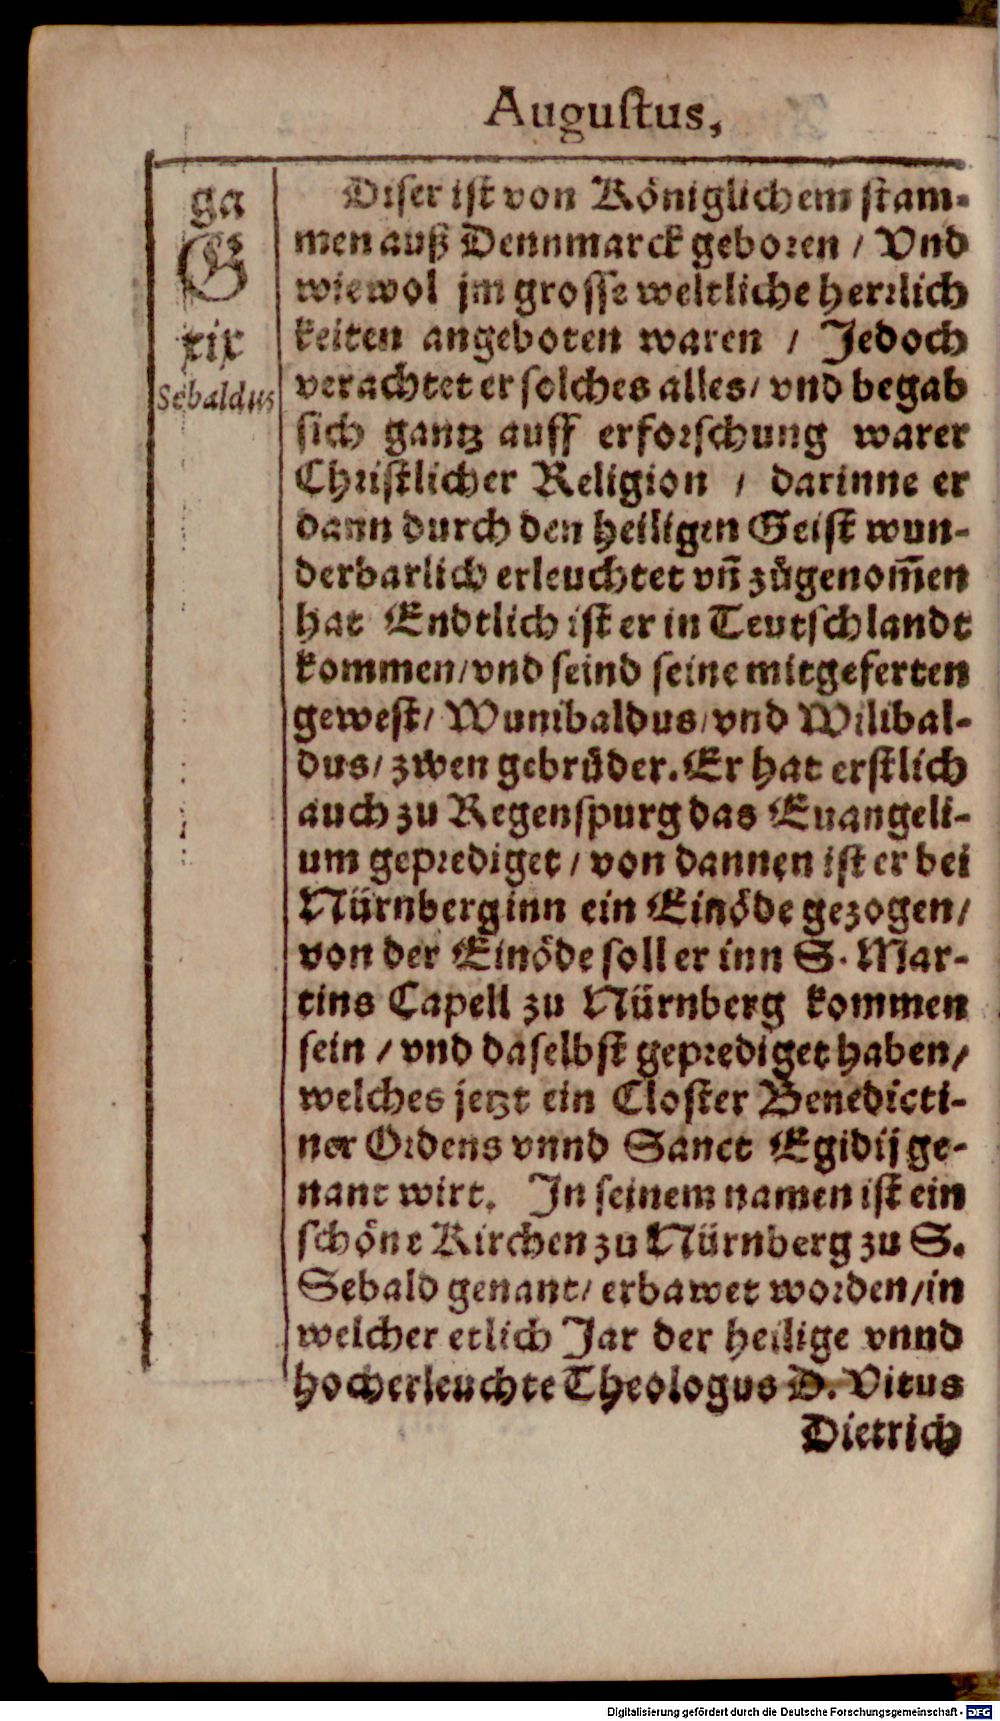 Augustus,
ga
G
xix
Sebaldus
Diser ist von Königlichem stam-
men auß Dennmarck geboren / Vnd
wiewol jm grosse weltliche herrlich
keiten angeboten waren / Jedoch
verachtet er solches alles / vnd begab
sich gantz auff erforschung warer
Christlicher Religion / darinne er
dann durch den heiligen Geist wun-
derbarlich erleuchtet vn̄ zůgenom̄en
hat Endtlich ist er in Teutschlandt
kommen / vnd seind seine mitgeferten
gewest / Wunibaldus / vnd Wilibal-
dus / zwen gebrüder. Er hat erstlich
auch zu Regenspurg das Euangeli-
um geprediget / von dannen ist er bei
Nürnberg inn ein Einöde gezogen /
von der Einöde soll er inn S. Mar-
tins Capell zu Nürnberg kommen
sein / vnd daselbst geprediget haben /
welches jetzt ein Closter Benedicti-
ner Ordens vnnd Sanct Egidij ge-
nant wirt. In seinem namen ist ein
schöne Kirchen zu Nürnberg zu S.
Sebald genant / erbawet worden / in
welcher etlich Jar der heilige vnnd
hocherleuchte Theologus D. Vitus
Dietrich
Digitalisierung gefördert durch die Deutsche Forschungsgemeinschaft - DFG